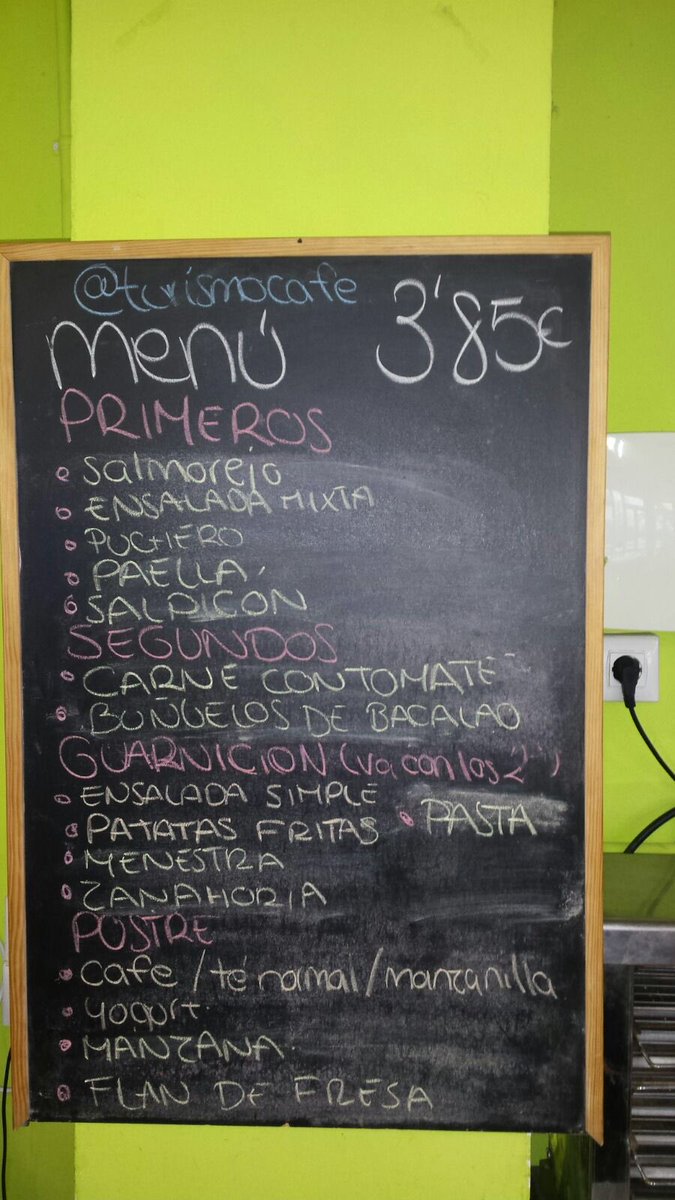 @turismocafe
Menú 3'85€
PRIMEROS
Salmorejo
ENSALADA MIXTA
PUCHERO
PAELLA.
SALPICON
SEGUNDOS
CARNE CON TOMATE
BUÑUELOS DE BACALAO
GUARNICION (va con los 2º)
ENSALADA SIMPLE
PATATAS FRITAS • PASTA
MENESTRA
ZANAHORIA
POSTRE
cafe / té normal / manzanilla
yogurt
MANZANA.
FLAN DE FRESA